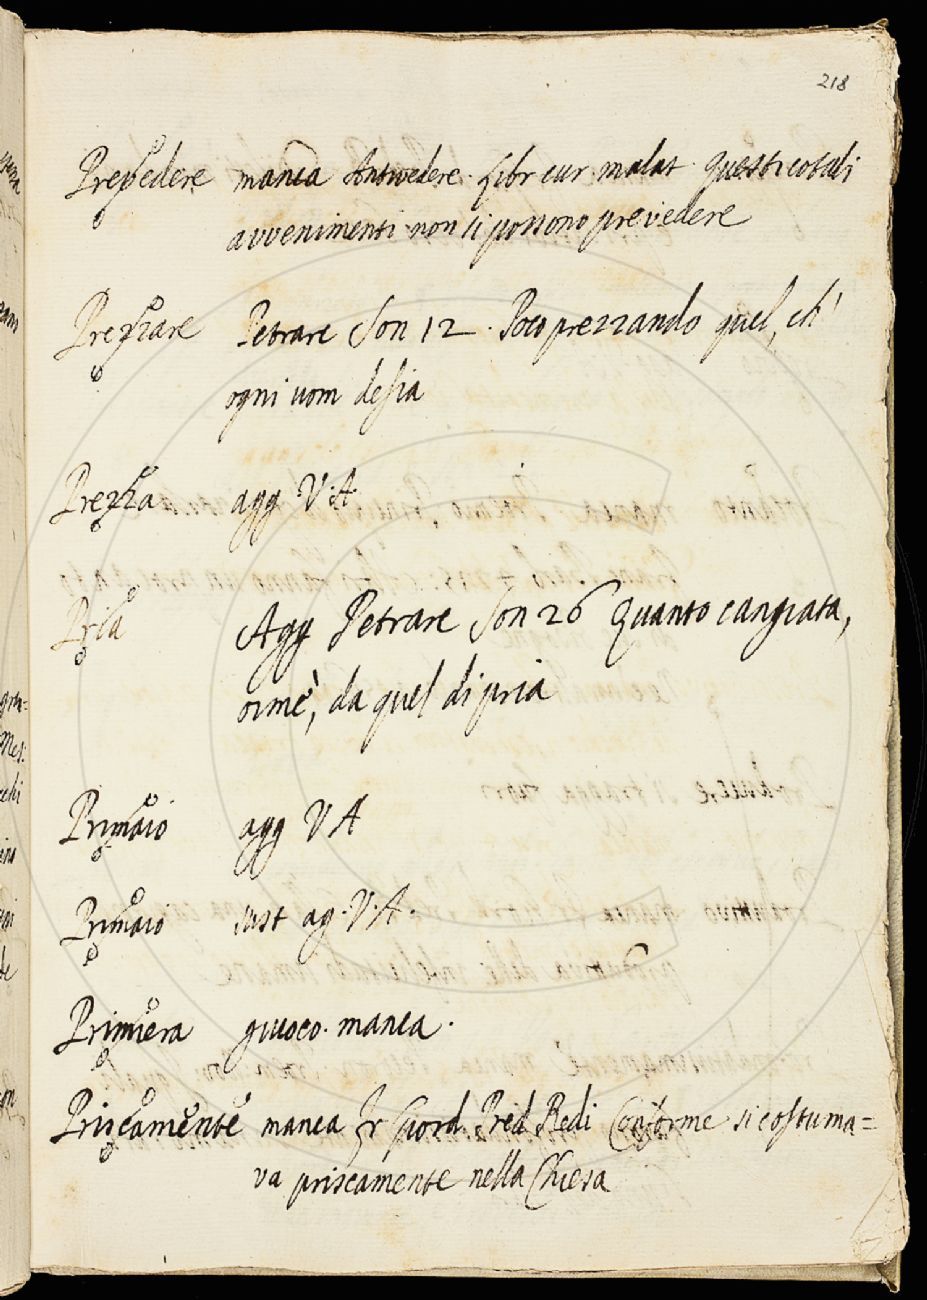 218
Prevedere manca Antivedere. libr cur malat. questi cotali
avvenimenti non si possono prevedere
Prezzare Petrarc Son 12. Poco prezzando quel, ch'
ogni uom desia
Prezza agg V. A.
Pria Agg Petrarc Son 26 Quanto cangiata,
oimè, da quel di pria
Primaio agg V A
Primaio sust ag. V. A.
Primiera giuoco. manca.
Priscamente manca Fr Giord Pred Redi Conforme si costuma=
va priscamente nella Chiesa